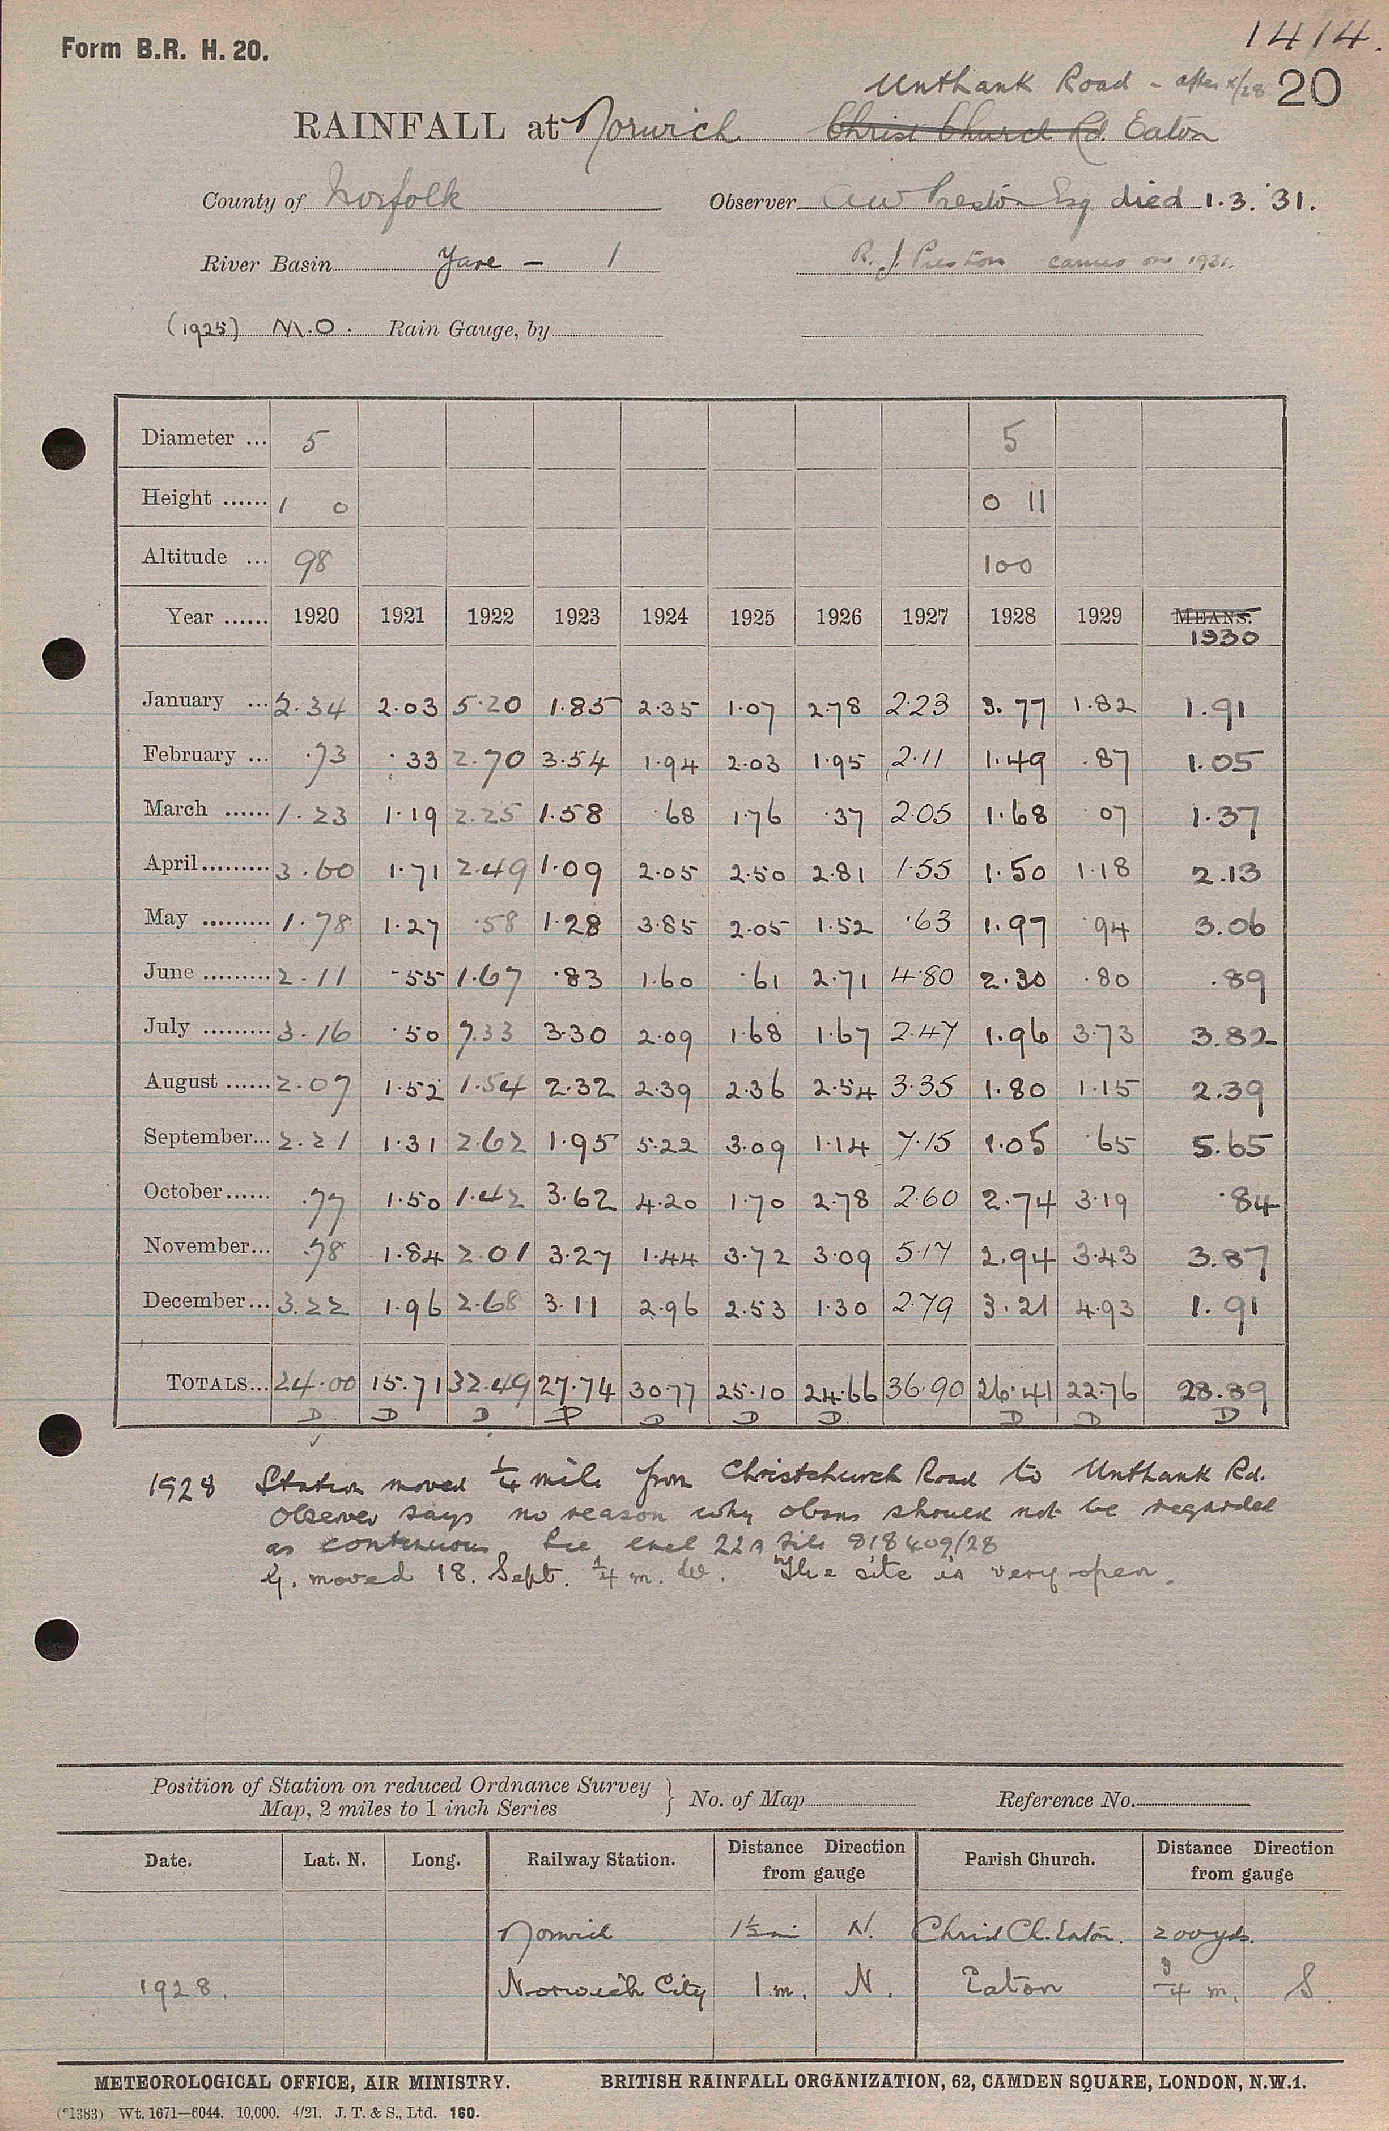 1414.
Form B.R. H. 20.
Unthank Road - after x/28 20
RAINFALL at Norwich Christ Church Rd. Eaton
County of Norfolk Observer A W Preston Esq died 1.3.'31.
River Basin Yare - 1 R. J. Preston carries on 1931.
(1925) M.O. Rain Gauge, by
Diameter ... 5 5
Height ...... 1 0 0 11
Altitude ... 98 100
Year ...... 1920 1921 1922 1923 1924 1925 1926 1927 1928 1929 MEANS.
1930
January ... 2.34 2.03 5.20 1.85 2.35 1.07 2.78 2.23 3.77 1.82 1.91
February ... .73 .33 2.70 3.54 1.94 2.03 1.95 2.11 1.49 .87 1.05
March ...... 1.23 1.19 2.25 1.58 .68 1.76 .37 2.05 1.68 07 1.37
April......... 3.60 1.71 2.49 1.09 2.05 2.50 2.81 1.55 1.50 1.18 2.13
May ......... 1.78 1.27 .58 1.28 3.85 2.05 1.52 .63 1.97 .94 3.06
June ......... 2.11 .55 1.67 .83 1.60 .61 2.71 4.80 2.30 .80 .89
July ......... 3.16 .50 7.33 3.30 2.09 1.68 1.67 2.47 1.96 3.73 3.82
August ...... 2.07 1.52 1.54 2.32 2.39 2.36 2.54 3.35 1.80 1.15 2.39
September... 2.21 1.31 2.62 1.95 5.22 3.09 1.14 7.15 1.05 .65 5.65
October...... .77 1.50 1.42 3.62 4.20 1.70 2.78 2.60 2.74 3.19 .84
November... .78 1.84 2.01 3.27 1.44 3.72 3.09 5.17 2.94 3.43 3.87
December... 3.22 1.96 2.68 3.11 2.96 2.53 1.30 2.79 3.21 4.93 1.91
TOTALS... 24.00 15.71 32.49 27.74 30.77 25.10 24.66 36.90 26.41 22.76 28.89
D D D D D D D D D D
1928 Station moved 1/4 mile from Christchurch Road to Unthank Rd.
Observer says no reason why obsns should not be regarded
as continuous. See encl 22A file 818409/28
G. moved 18. Sept. 1/4 m. W. The site is very open.
Position of Station on reduced Ordnance Survey } No. of Map Reference No.
Map, 2 miles to 1 inch Series
Date. Lat. N. Long. Railway Station. Distance Direction from gauge Parish Church. Distance Direction from gauge
Norwich 1½ mi N. Christ Ch. Eaton. 200 yds.
1928. Norwich City 1 m. N. Eaton 3/4 m. S.
METEOROLOGICAL OFFICE, AIR MINISTRY. BRITISH RAINFALL ORGANIZATION, 62, CAMDEN SQUARE, LONDON, N.W.1.
(*1383) Wt. 1671—6044. 10,000. 4/21. J. T. & S., Ltd. 160.